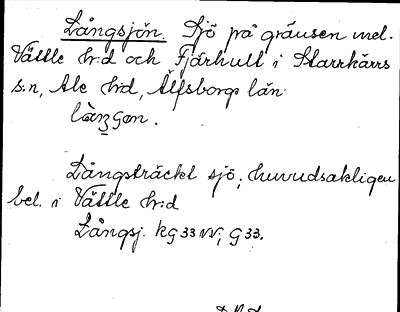 Långsjön. Sjö på gränsen mel.
Vättle h:d och Fjärhult i Starrkärrs
s:n, Ale h:d, Älfsborgs län.
Långsträckt sjö, huvudsakligen
bel. i Vättle h:d
Långsj. kg 33 NV; G 33.